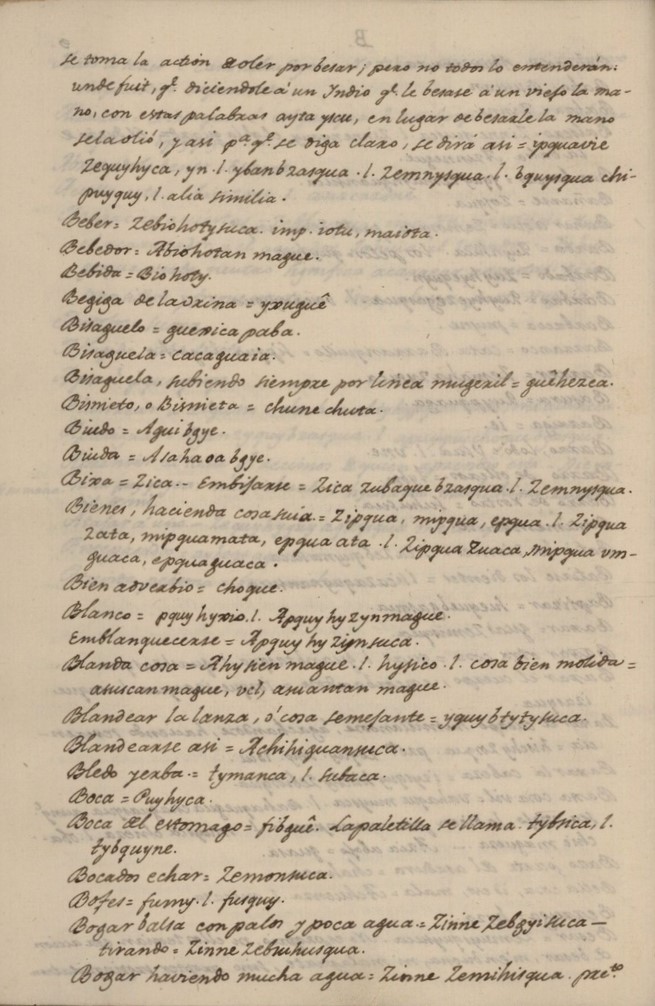 se toma la action de oler por besar; pero no todos lo entenderán:
unde fuit, q.e diciendole á un Indio q.e le besase á un viejo la ma-
no, con estas palabras ayta yscu, en lugar de besarle la mano
se la olió, y asi p.a q.e se diga claro, se dirá asi = ipquavie
zequyhyca, yn .l. ybanbzasqua .l. zemnysqua .l. bquysqua chi-
puyquy, l. alia similia.
Beber = Zebiohotysuca. imp. iotu, maiota.
Bebedor = Abiohotan mague.
Bebida = Biohoty.
Begiga de la orina = yxuguê
Bisaguelo = guexica paba.
Bisaguela = cacaguaia.
Bisaguela, subiendo siempre por linea mugeril = guêhezca.
Bisnieto, o Bisnieta = chune chuta.
Biudo = Agui bgye.
Biuda = Asahaoa bgye.
Bixa = Zica -- Embijarse = Zica zubaque bzasqua .l. Zemnysqua.
Bienes, hacienda cosa suia = Zipqua, mipqua, epqua .l. Zipqua
zata, mipquamata, epqua ata .l. Zipqua Zuaca, mipqua vm-
guaca, epquaguaca.
Bien adverbio = choque.
Blanco = pquyhyxio .l. Apquyhyzynmague.
Emblanquecerse = Apquyhyzynsuca.
Blanda cosa = Ahysien mague .l. hysico .l. cosa bien molida =
asuscanmague, vel, asuantan mague.
Blandear la lanza, ó cosa semejante = yquybtytysuca.
Blandearse asi = Achihiquansuca.
Bledo yerba = tymanca, l. subaca.
Boca = Puyhyca.
Boca del estomago = fibquê. La paletilla se llama tybsica, l.
tybquyne.
Bocados echar = Zemonsuca.
Bofes = fumy .l. fusquy.
Bogar balsa con palos y poca agua = Zinne Zebgyisuca —
tirando = Zinne Zebuhusqua.
Bogar haviendo mucha agua = Zinne Zemihisqua. præ.to